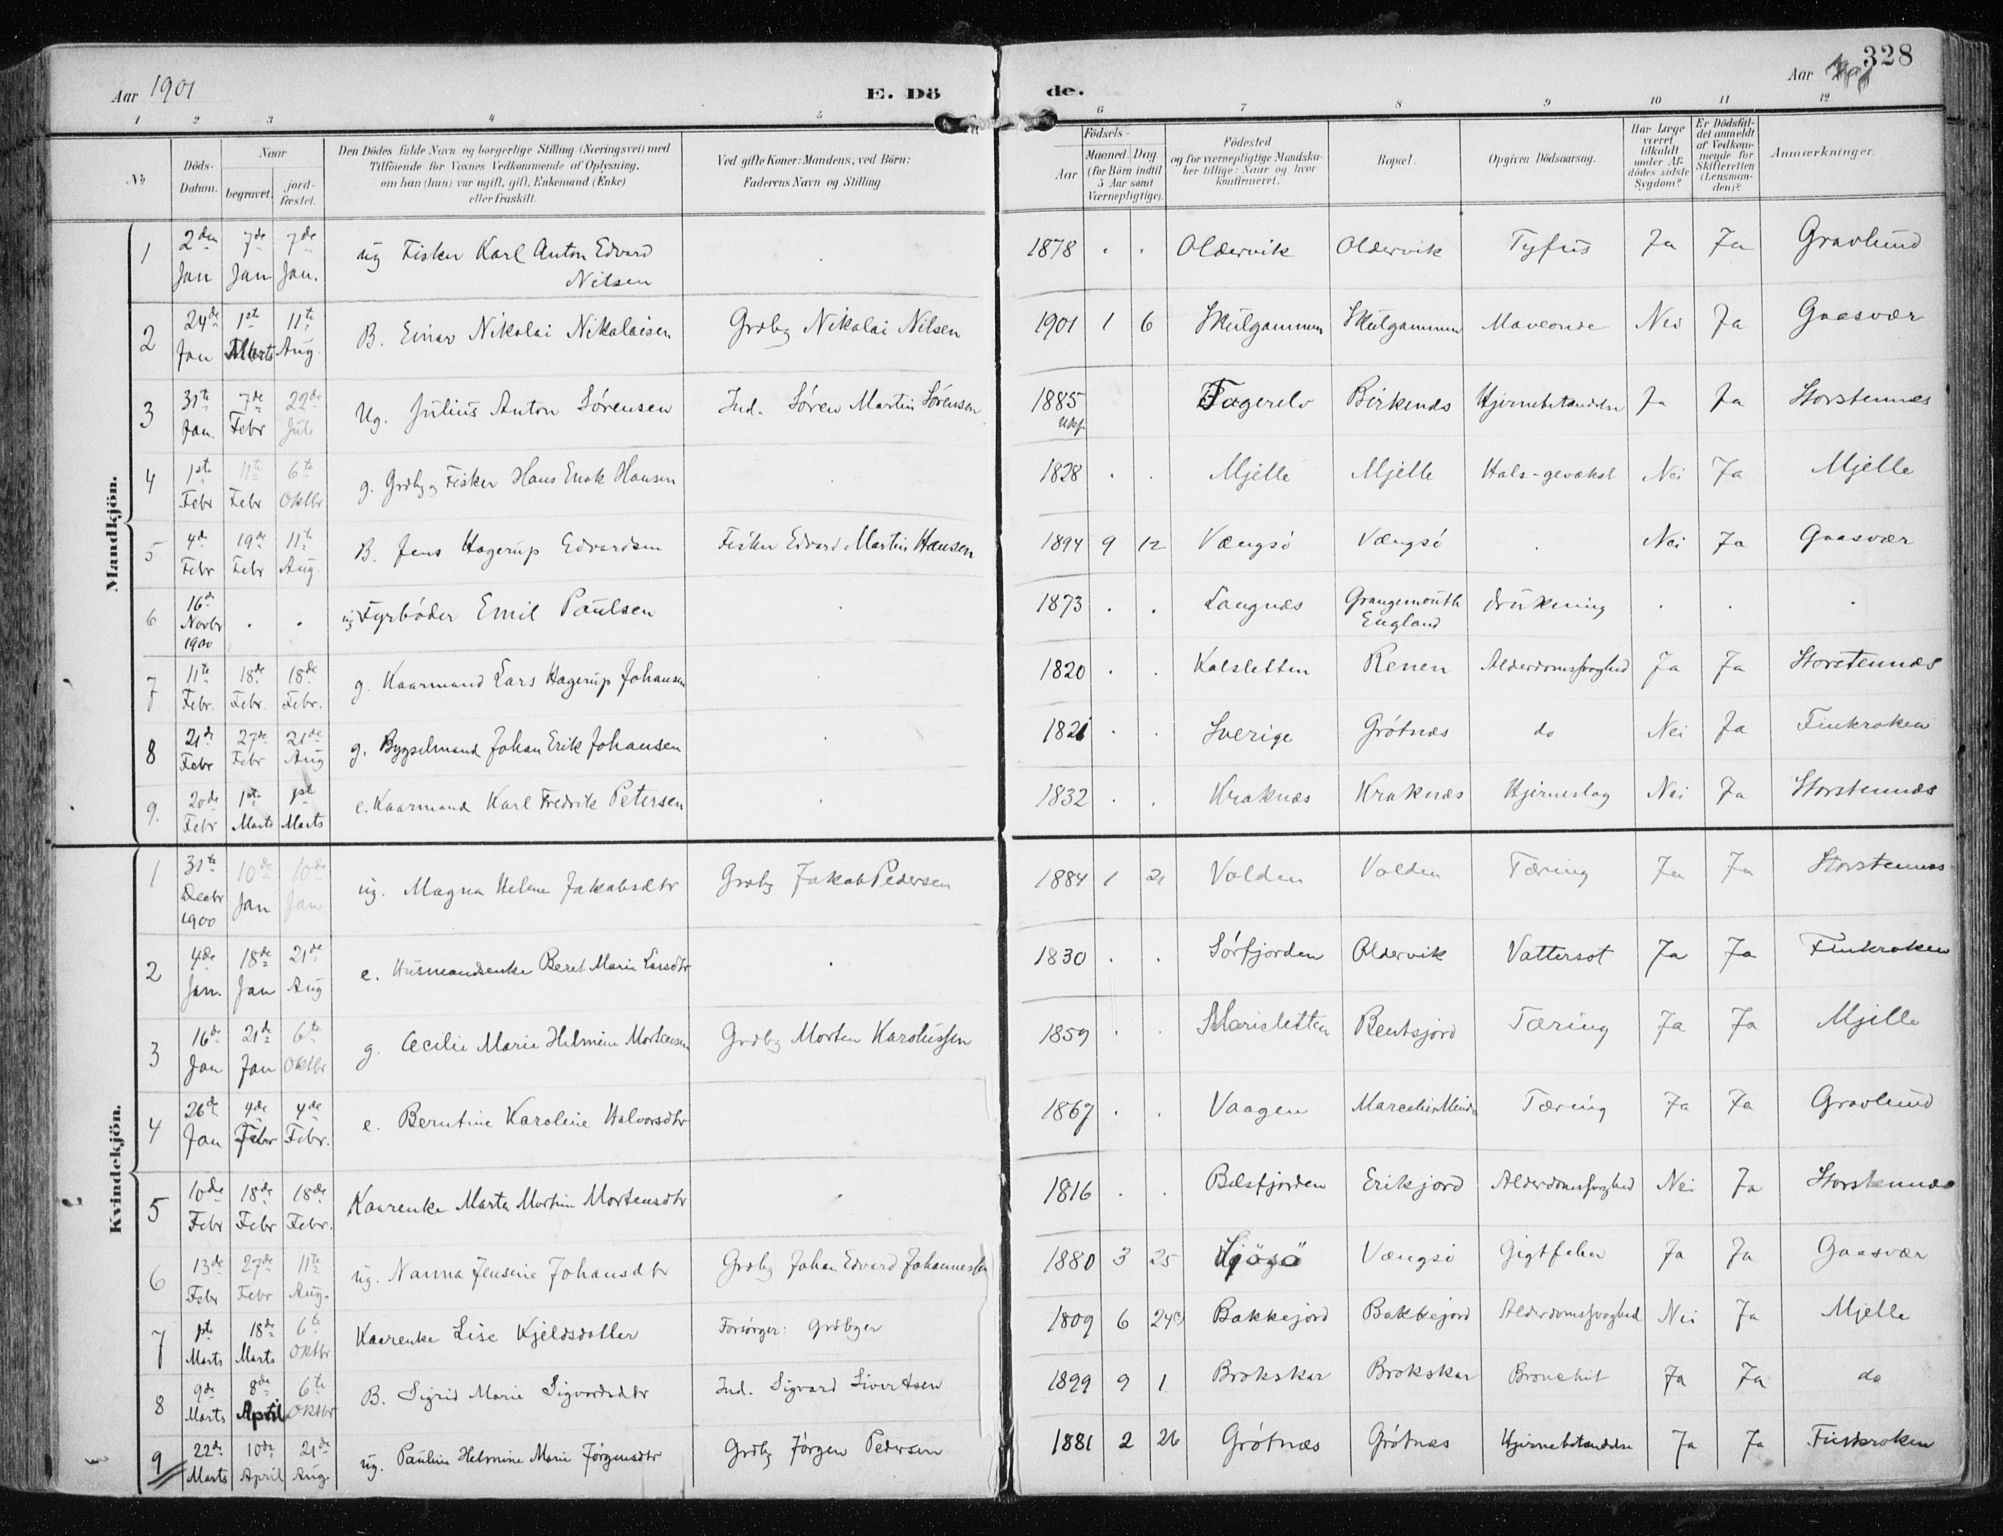 Aar 1901
E. Dö
de.
Aar
328
1 2 3 4 5 6 7 8 9 10 11 12
No
Döds-Datum.
Naar
begravet.
jord-fæstet.
Den Dödes fulde Navn og borgerlige Stilling (Næringsvei) med
Tilföiende for Voxnes Vedkommende af Oplysning,
om han (hun) var ugift, gift, Enkemand (Enke)
eller fraskilt.
Ved gifte Koner: Mandens, ved Börn:
Faderens Navn og Stilling
Födsels-
Aar
Maaned. Dag
(for Börn indtil
5 Aar samt
Værnepligtige).
Födested
og for værnepligtige Mandska-
ber tillige: Naar og hvor
konfirmeret.
Bopæl.
Opgiven Dödsaarsag.
Har Læge
været
tilkaldt
under Af-
dödes sidste
Sygdom?
Er Dödsfal-
det anmeldt
af Vedkom-
mende for
Skifteretten
(Lensman-
den)?
Anmærkninger.
Mandkjön.
1 2den Jan 7de Jan 7de Jan. ug Fisker Karl Anton Edvard Nilsen . 1878 . . Oldervik Oldervik Tyfus Ja Ja Gravlund
2 24de Jan 1st Marts 11te Aug. B. Einar Nikolai Nikolaisen Grdbg Nikolai Nilsen 1901 1 6 Skulgammen Skulgammen Maveonde Nei Ja Gaasvær
3 31te Jan. 7de Febr 22de Juli Ug. Julius Anton Sørensen Ind. Søren Martin Sørensen 1885 ukf. Fagerelv Birkenæs Hjernebetændelse Ja Ja Storstennæs
4 1ste Febr 11te Febr 6te Oktbr g. Grdbg og Fisker Hans Enok Hansen . 1828 . . Mjelle Mjelle Hals-gevækst Nei Ja Mjelle
5 4de Febr 19de Febr 11te Aug. B. Jens Hagerup Edvardsen Fisker Edvard Martin Hansen 1894 9 12 Vængsö Vængsö . Nei Ja Gaasvær
6 16de Novbr 1900 . . ug Fyrbøder Emil Paulsen . 1873 . . Langnæs Grangemouth England drukning . . .
7 11te Febr. 18de Febr. 18de Febr. g. Kaarmand Lars Hagerup Johansen . 1820 . . Kalsletten Renen Alderdomssvaghed Ja Ja Storstennæs
8 21de Febr 27de Febr 21de Aug g. Bygselmand Johan Erik Johansen . 1821 . . Sverige Grötnæs do Nei Ja Finkroken
9. 20de Febr 1ste Marts 1ste Marts e. Kaarmand Karl Fredrik Petersen . 1832 . . Kraknæs Kraknæs Hjerneslag Nei Ja Storstennæs
Kvindekjön.
1 31te Decbr 1900 10de Jan 10de Jan. ug. Magna Helene Jakobsdtr Grdbg Jakob Pedersen 1884 1 21 Volden Volden Tæring Ja Ja Storstennæs
2 4de Jan. 18de Jan 21de Aug e. Husmandsenke Beret Marie Larsdtr . 1830 . . Sörfjorden Oldervik Vattersot Ja Ja Finkroken
3 16de Jan 21de Jan 6te Oktbr g. Cecilie Marie Helmine Mortensen Grdbg Morten Karolussen 1859 . . Marisletten Bentsjord Tæring Ja Ja Mjelle
4 26de Jan 4de Febr 4de Febr. e. Berntine Karoline Halvorsdtr 1867 . . Vaagen Tæring Ja Ja Gravlund
5 10de Febr 18de Febr 18de Febr. Kaarenke Marta Martine Mortensdtr . 1816 . . Balsfjorden Erikjord Alderdomssvaghed Nei Ja Storstennæs
6 13de Febr 27de Febr 11te Aug. ug. Nanna Jensine Johansdtr Grdbg Johan Edvard Johannessen 1880 3 25 Vængsö Gigtfeber Ja Ja Gaasvær
7 1ste Marts 18de Marts 6te Oktbr Kaarenke Lise Kjeldsdatter Forsørger: Grdbger 1809 6 24 Bakkejord Bakkejord Alderdomssvaghed Nei Ja Mjelle
8 9de Marts 8de April 6te Oktbr B. Sigrid Marie Sigvardsdtr Ind. Sigvard Sivertsen 1899 9 1 Brokskar Brokskar Bronchit Ja Ja do
9 22de Marts 10de April 21de Aug. ug. Pauline Helmine Marie Jørgensdtr Grdbg Jørgen Pedersen 1881 2 26 Grötnæs Grötnæs Hjernebetændelse Ja Ja Finkroken